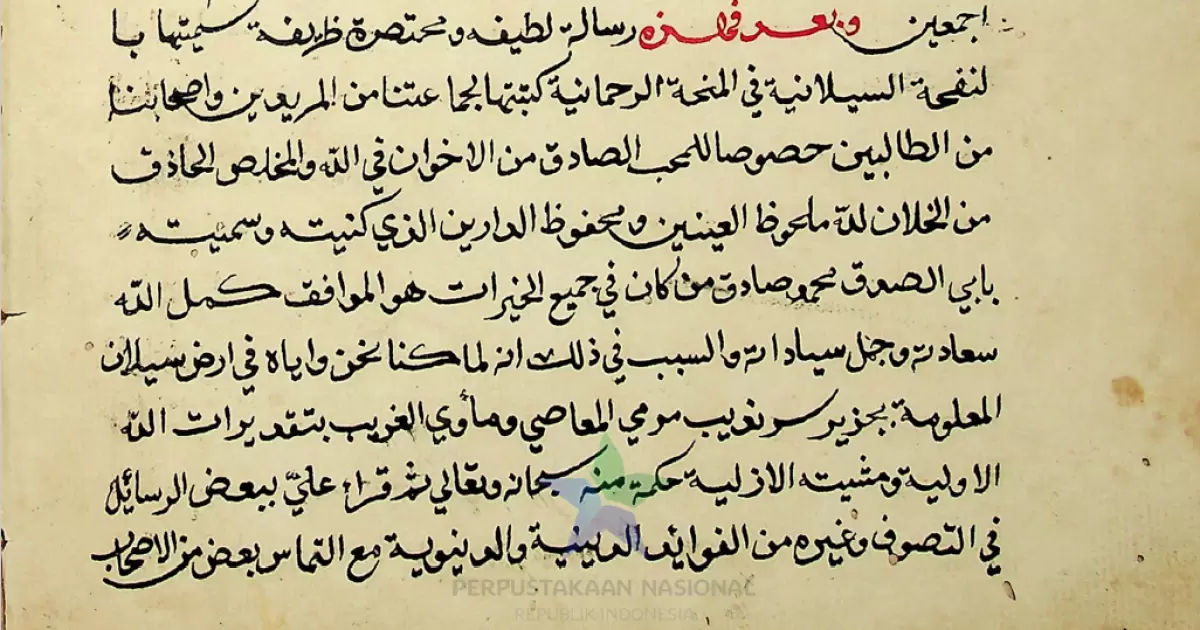 اجمعين وبعد فهذه رسالة لطيفه ومختصرة ظريفة سميتها با
لنفحة السيلانية في المنحة الرحمانية كتبتها لجماعتنا من المريدين واصحابنا
من الطالبين خصوصا للمحب الصادق من الاخوان في الله والمخلص الحاذق
من الخلان لله ملحوظ العينين ومحفوظ الدارين الذي كنيته وسميته
بابي الصدق محمد صادق من كان في جميع الخيرات هو الموافق كمل الله
سعادته وجمل سياداته والسبب في ذلك انه لما كنا نحن واياه في ارض سيلان
المعلومة بجزير سرنديب مومي المعاصي ومأوي الغريب بتقديرات الله
الاولية ومشيته الازلية حكمة منه سبحانه وتعالي ثم قراء عليّ ببعض الرسائل
في التصوف وغيره من الفوائد الدينية والدينوية مع التماس بعض من الاصحاب
PERPUSTAKAAN NASIONAL
REPUBLIK INDONESIA